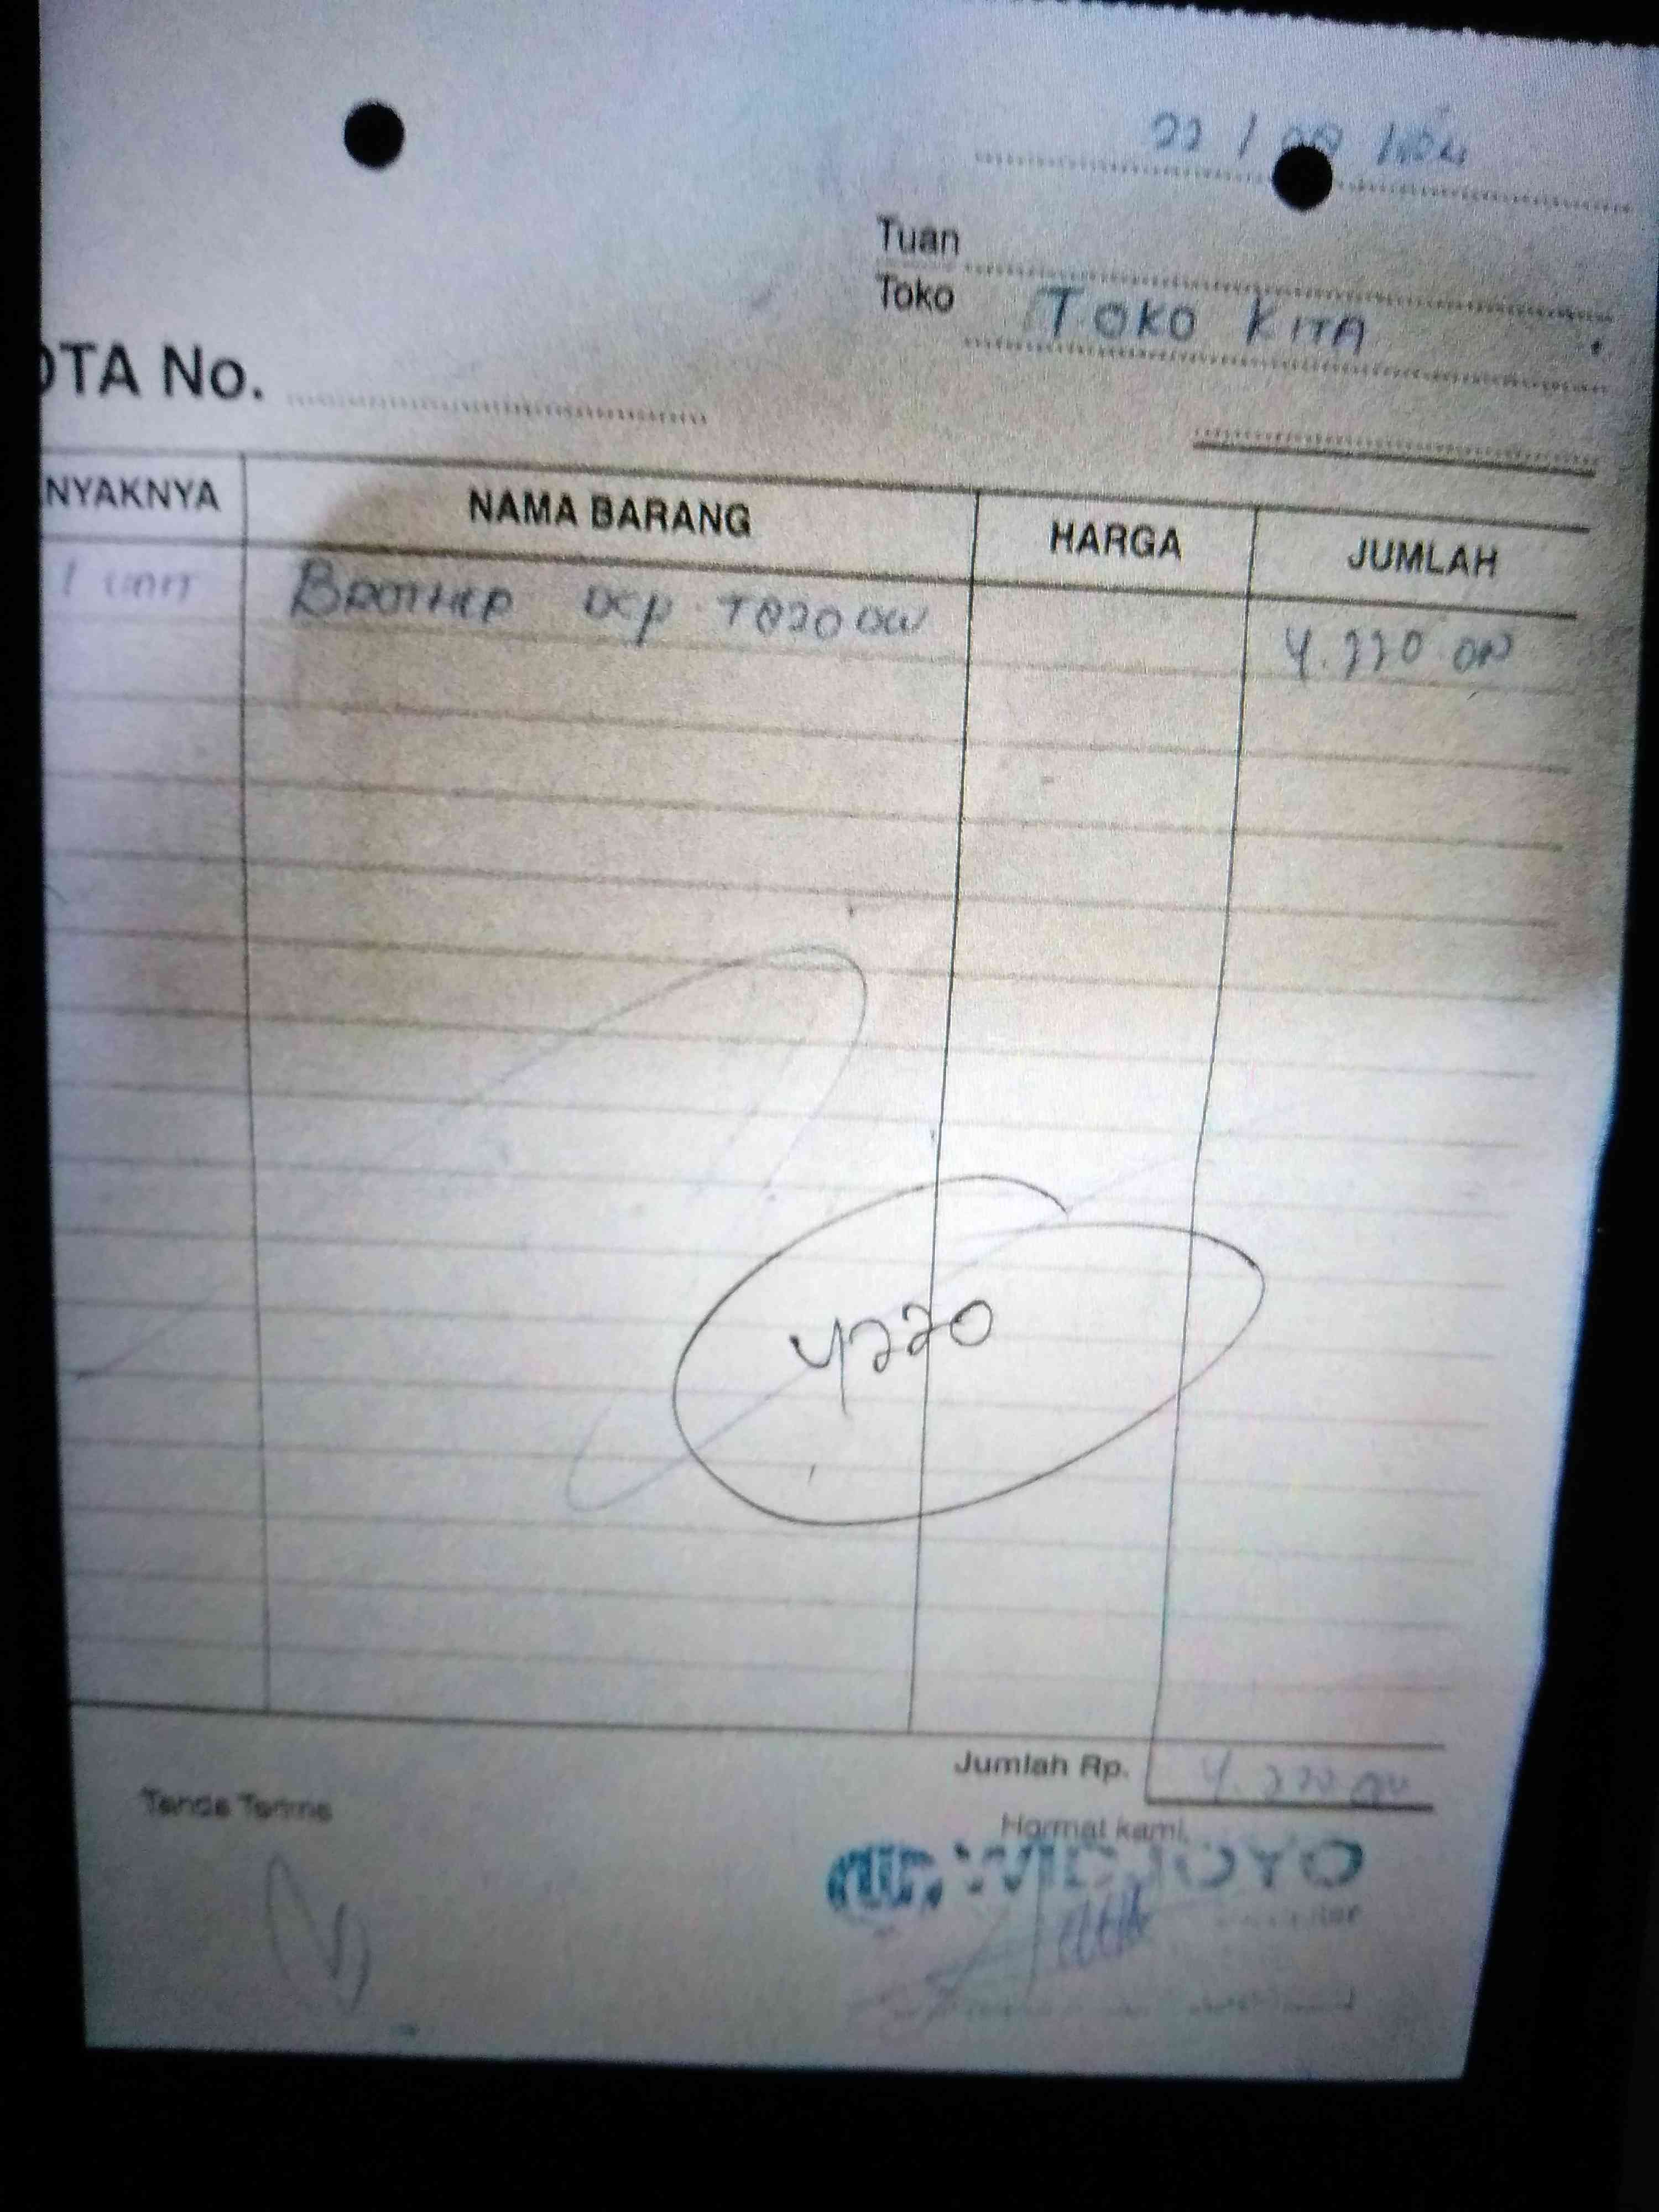 Tuan
Toko TOKO KITA
OTA No.
NYAKNYA NAMA BARANG HARGA JUMLAH
1 UNIT BROTHER DCP T820DW 4.220.000
4220
Jumlah Rp. 4.220.000
Tanda Terima Hormat kami,
WIDJOYO